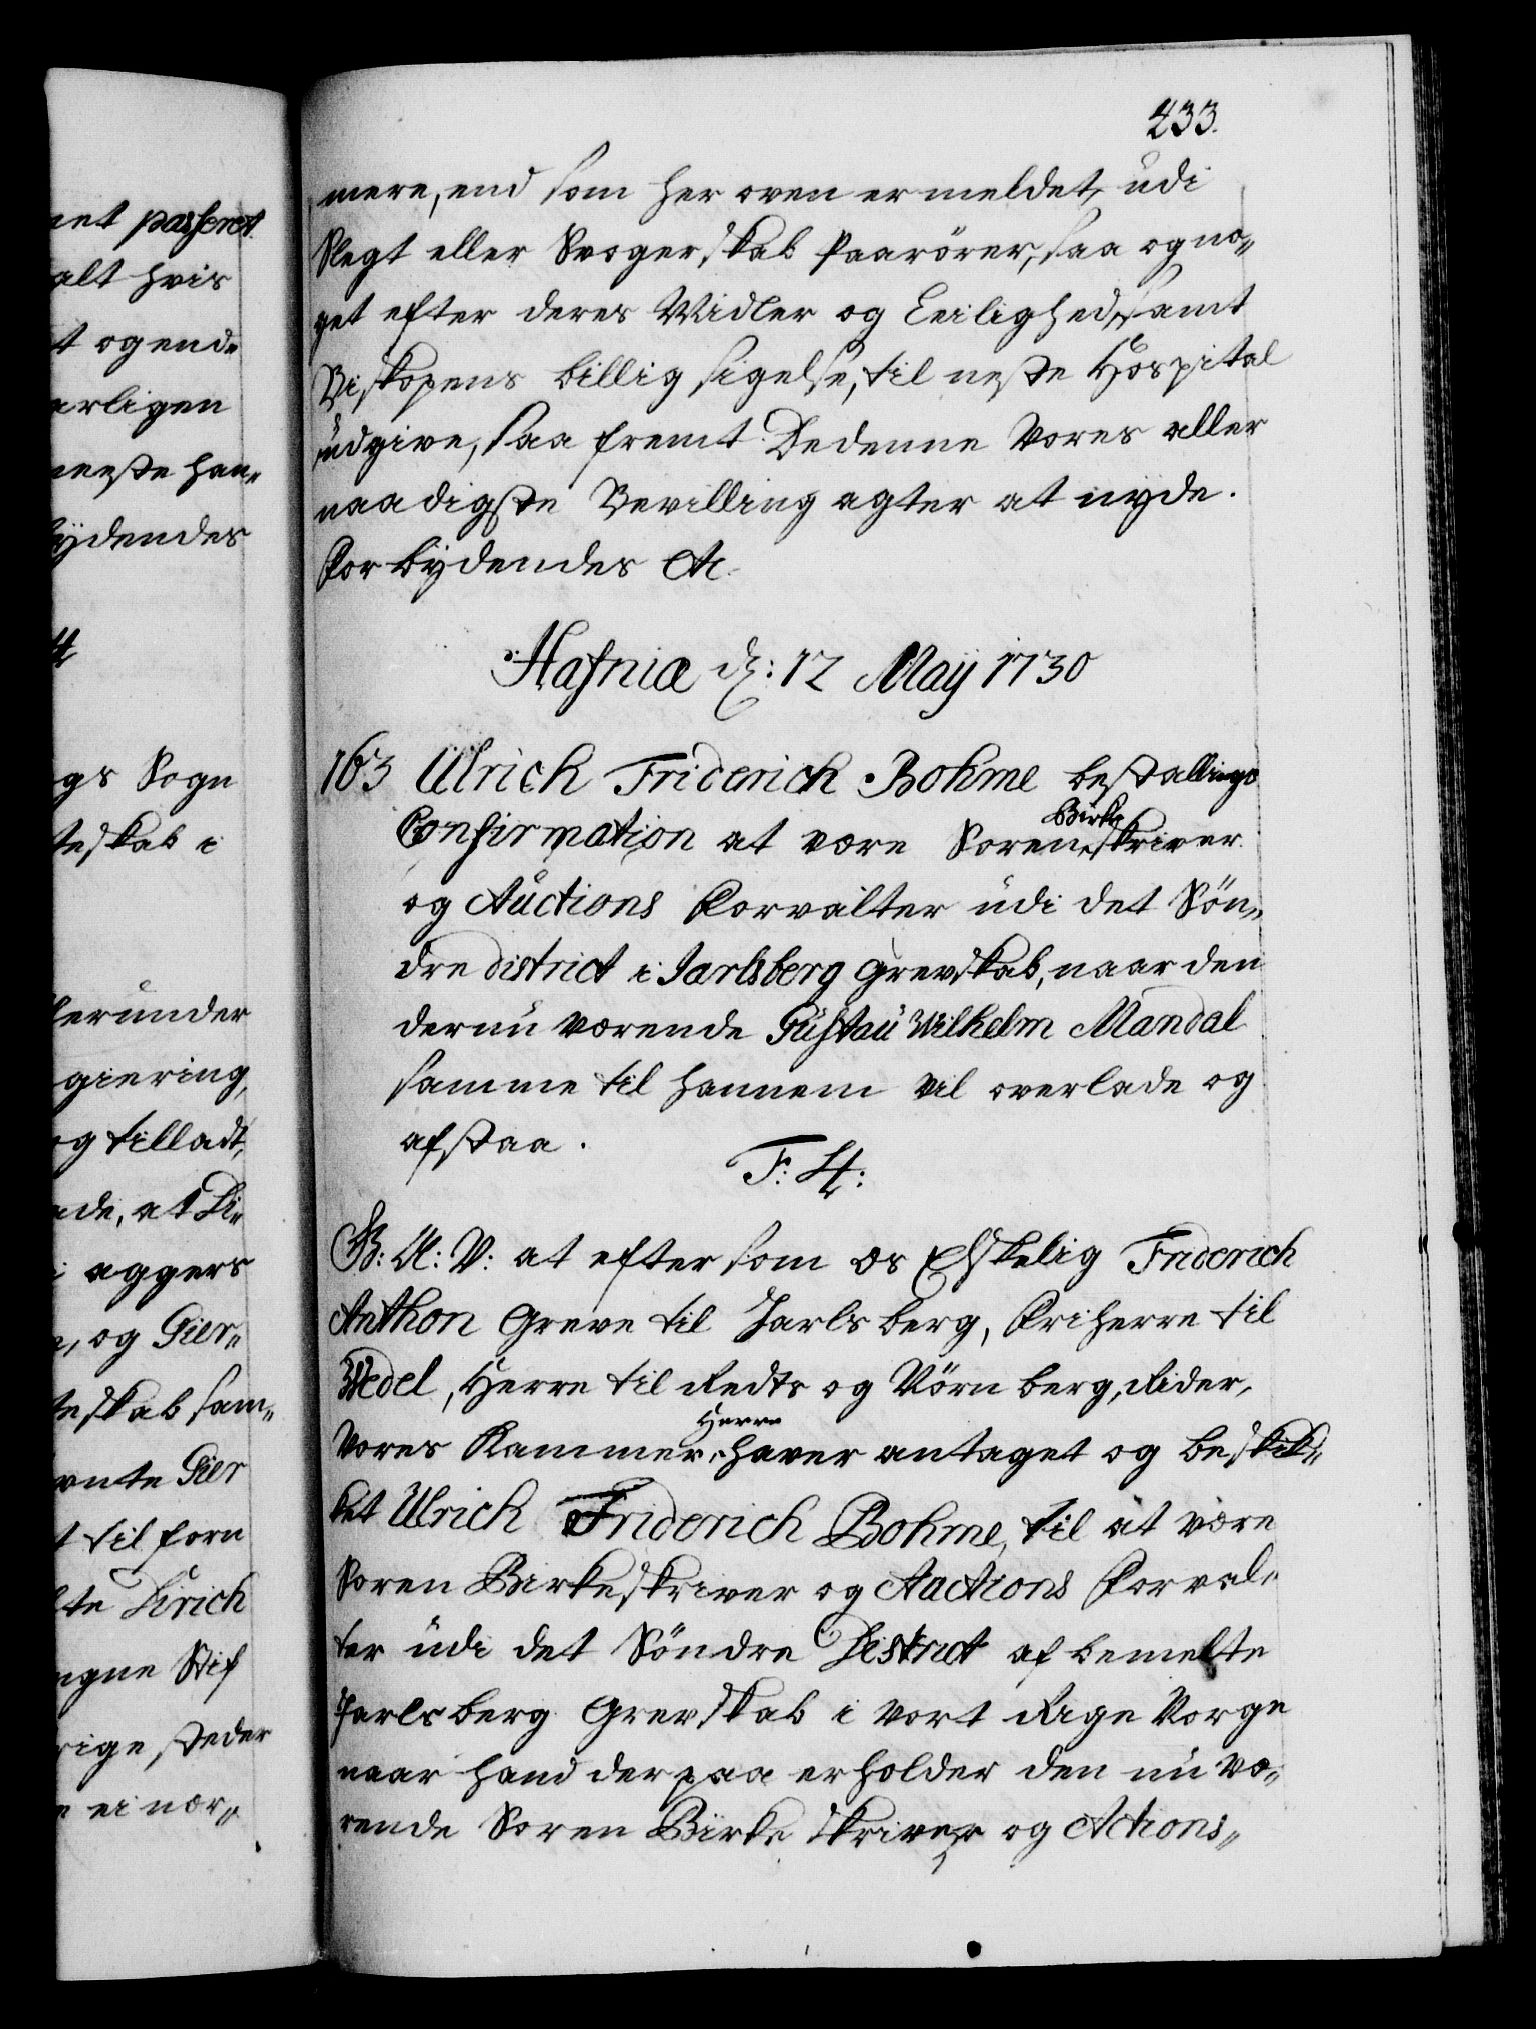 433.
mere, end som her oven er meldet, udi
Slegt eller Svogerskab Paarörer, saa og no¬
get efter deres Midler og Leilighed, samt
Biskopens billig sigelse, til neste Hospital
udgive, saa fremt De denne Vores aller
naadigste Bevilling agter at nyde.
Forbydendes etc
Hafniæ d: 12 Maij 1730
163 Ulrich Friderich Bohme bestallings
Confirmation at være Soren Birke skriver
og Auctions Forvalter udi det Sön¬
dre district i Jarlsberg Grevskab, naar den
der nu værende Gustau Wilhelm Mandal
samme til hannem vil overlade og
afstaa.
F: 4:
G: A: V: at eftersom os Elskelig Friderich
Anthon Greve til Jarlsberg, Friherre til
Wedel, Herre til Redts og Vörnberg, Rider,
Vores Kammer Herre haver antaget og beskik¬
ket Ulrich Friderich Bohme, til at være
Soren Birkeskriver og Auctions Forval¬
ter udi det Söndre District af bemelte
Jarlsberg Grevskab i vort Rige Norge
naar hand der paa erholder den nu væ¬
rende Soren Birke skriver og Actions¬
net passeret
alt hvis
t og end¬
arligen
neste han¬
ydendes
gs Sogn
teskab i
erunder
giering,
og tilladt,
ade, at Li¬
i aggers
, og Gier¬
teskab sam¬
vnte Gier
t tilforn
te Lirich
egne Stif
rige steder
e ei nær¬